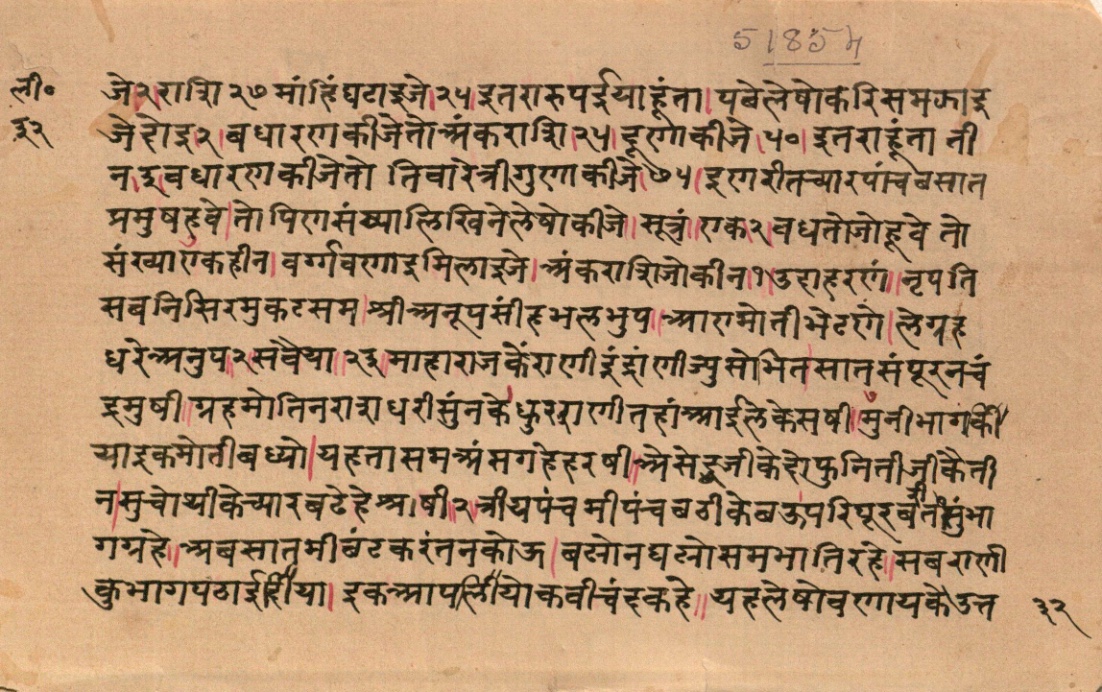 51854
ली॰ जे२राशि २७ मांहिं घटाइजे।२५।इतरा रुपईया हूंता। पबे लेषो करि समझाइ
३२ जे होइ२। बधारण कीजे तो अंक राशि २५। दूणा कीजे।५०। इतरा हूंता ती
न ३ वधारण कीजे तो तिवारे त्रीगुणा कीजे।७५। इण रीत च्यार पांच बे सात
प्रमुष हुवे। तो पिण संख्या लिखिने लेषो कीजे॥ सूत्रं॥ एक२ वधतो जो हूवे तो
संख्या एक हीन। वर्ग्ग वणाइ मिलाइजे। अंक राशि जो कीन १। उदाहरणं॥ नृपति
सबनि सिर मुकट सम। श्री अनूपसींह भल भुप। आण मोती भेट रणे। ले ग्रह
धरे अनुप२ सवैया॥ २३ माहाराज कें राणी इंद्रांणी ज्यु सोभित सात संपूरन चं
द्रमुषी॥ ग्रह मोतिन रारा धरी सुंनके धुर राणी तहां आई लेके सषी॥ मुनी भाग की
या इक मोती बध्यो। यह तास मन्अंस गहे हरषी॥ असे दूजी के हो फुनि तीजी कै ती
न सु चोथी के च्यार बढे हे श्रषी२ त्रीय पंचमी पंच बठी के ब ऊपरि पूरवै तो सुं भा
ग ग्रहे॥ अब सातमी बंट करंत न कोऊ। बट्यो न घट्यो सम भाति रहे॥ सब राणी
कु भाग पठाई दीया। इक आप लियो कवी चंद कहे॥ यह लेषो वणाय के उत्त ३२